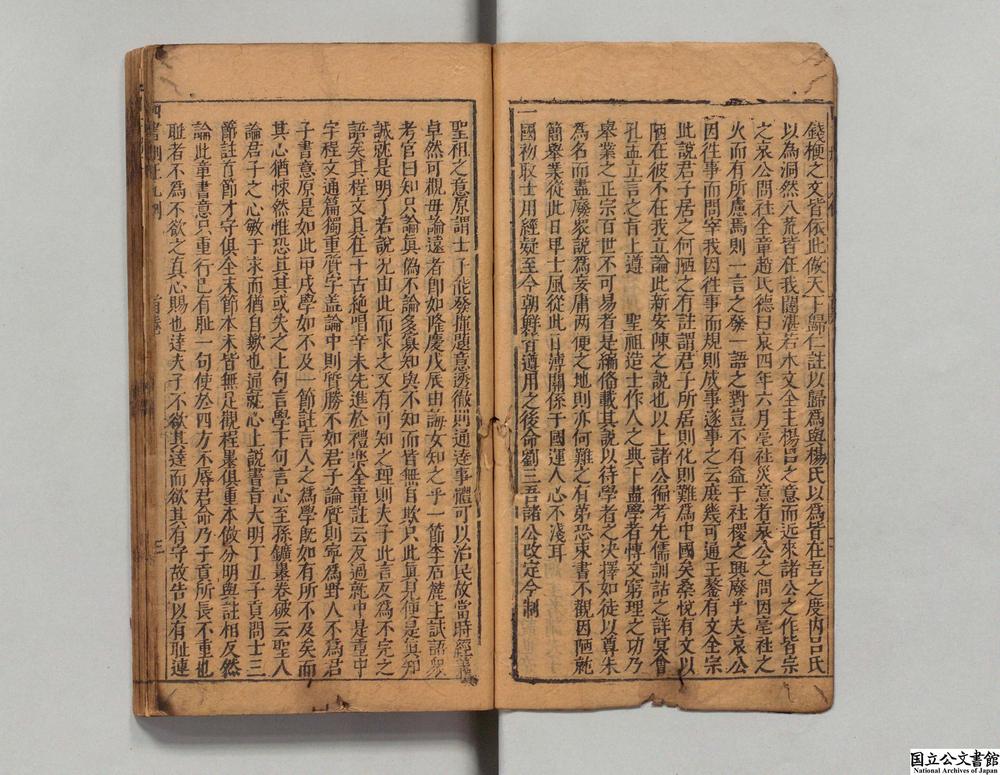 錢梗之文皆依此做天下歸仁註以歸為與楊氏以為皆在吾之度內呂氏
以為洞然八荒皆在我闥湛若水文全主楊呂之意而近來諸公之作皆宗
之哀公問社全章趙氏德曰哀四年六月亳社災意者哀公之問因亳社之
火而有所慮焉則一言之發一語之對豈不有益于社稷之興廢乎夫哀公
因往事而問宰我因往事而規則成事遂事之云庶幾可通王鏊有文全宗
此說君子居之何陋之有註謂君子所居則化則難為中國矣桑悅有文以
陋在彼不在我立論此新安陳之說也以上諸公徧考先儒訓詁之詳冥會
孔孟立言之旨上遵 聖祖造士作人之典下盡學者博文窮理之功乃
舉業之正宗百世不可易者是編俻載其說以待學者之決擇如徒以尊朱
為名而盡廢衆說為妄庸両便之地則亦何難之有第恐束書不觀因陋就
簡舉業從此日卑士風從此日薄關係于國運人心不淺耳
一國初取士用經疑至今朝鮮皆遵用之後命劉三吾諸公改定今制
聖祖之意原謂士子能發揮題意透徹則通達事體可以治民故當時經義
卓然可觀毋論遠者即如隆慶戊辰由誨女知之乎一節李石麓主試語衆
考官曰知只論眞偽不論多寡知與不知而皆無自欺只此眞見便是眞知
誠就是明了若說况由此而求之又有可知之理則夫子此言反為不完之
語矣其程文具在千古絶唱辛未先進於禮樂全章註云反過就中是重中
字程文通篇獨重質字盖論中則質勝不如君子論質則寧為野人不為君
子書意原是如此甲戌學如不及一節註言人之為學旣如有所不及矣而
其心猶悚然惟恐其其或失之上句言學下句言心至孫鑛墨卷破云聖人
論君子之心敏于求而猶自歉也逼就心上說書旨大明丁丑子貢問士三
節註首節才守俱全末節本末皆無足觀程墨俱重本做分明與註相反然
論此章書意只重行已有耻一句使於四方不辱君命乃子貢所長不重也
耻者不為不欲之真心賜也達夫子不欲其達而欲其有守故告以有耻連
四書
凡例
三
国立公文書館
National Archives of Japan